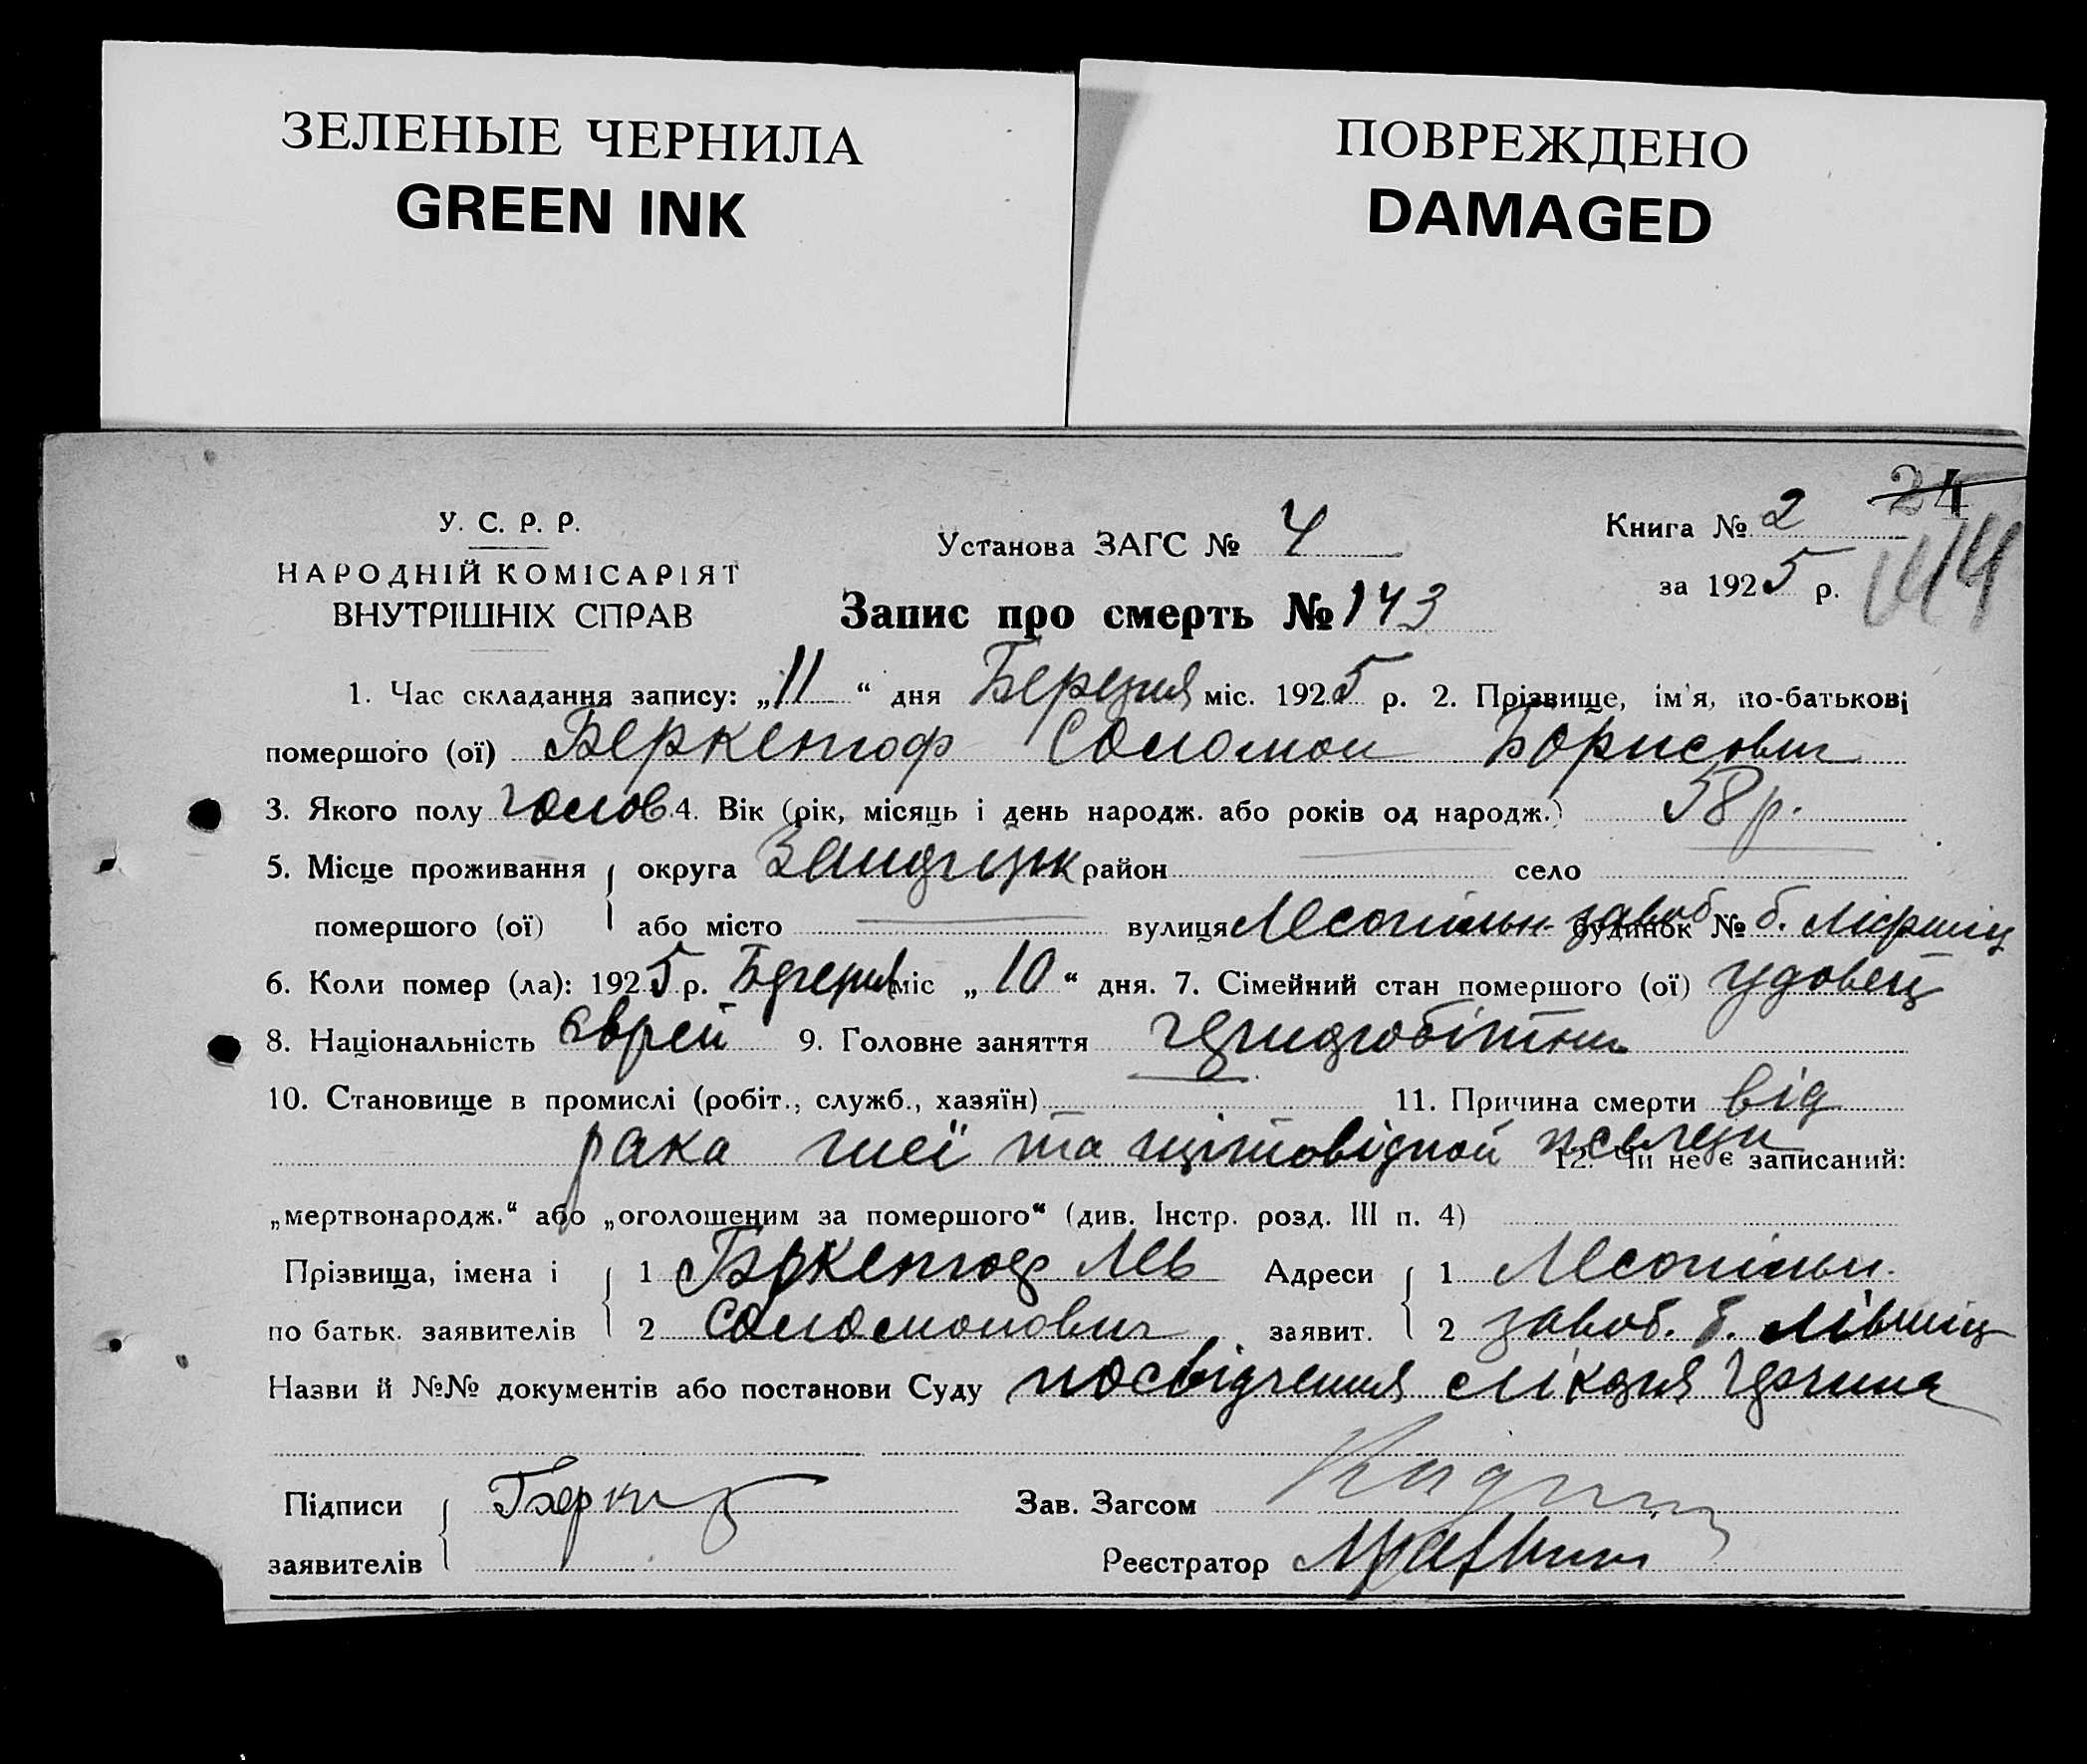 ЗЕЛЕНЫЕ ЧЕРНИЛА
GREEN INK
ПОВРЕЖДЕНО
DAMAGED
24
У. С. Р. Р.
НАРОДНІЙ КОМІСАРІЯТ
ВНУТРІШНІХ СПРАВ
Установа ЗАГС № 4
Книга № 2
за 1925 р.
Запис про смерть № 143
1. Час складання запису: „11“ дня Березня міс. 1925 р. 2. Прізвище, ім'я, по-батькові
помершого (ої) Беркенгоф Соломон Борисович
3. Якого полу чолов. 4. Вік (рік, місяць і день народж. або років од народж.) 58 р.
5. Місце проживання округа район село
помершого (ої) або місто вулиця Лесопільн. завод будинок № б.
6. Коли помер (ла): 1925 р. міс „10“ дня. 7. Сімейний стан помершого (ої) удовец
8. Національність єврей 9. Головне заняття
10. Становище в промислі (робіт., служб., хазяїн) 11. Причина смерти від
рака шеї та щітовідной 12. Чи не є записаний:
„мертвонародж.“ або „оголошеним за помершого“ (див. Інстр. розд. III п. 4)
Прізвища, імена і 1 Беркенгоф Лев Адреси 1 Лесопільн.
по батьк. заявителів 2 Соломонович заявит. 2 завод. б. Лівшиц
Назви й №№ документів або постанови Суду посвідчення лікаря
Підписи Зав. Загсом
заявителів Реєстратор